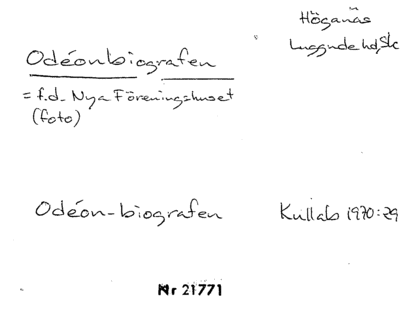 Höganäs
Luggude hd, Sk
Odéonbiografen
= f.d. Nya Föreningshuset
(foto)
Odéon-biografen
Kullab 1970:29
Nr 21771